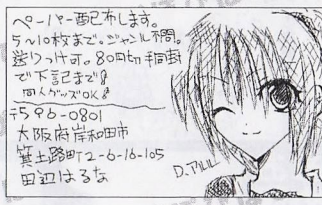 ペーパー配布します。
5〜10枚まで。ジャンル不問。
送りつけ可。80円切手同封
で下記まで♪
同人グッズOK♪
〒596-0801
大阪府岸和田市
箕土路町2-6-16-105
田辺はるな
D.アルル